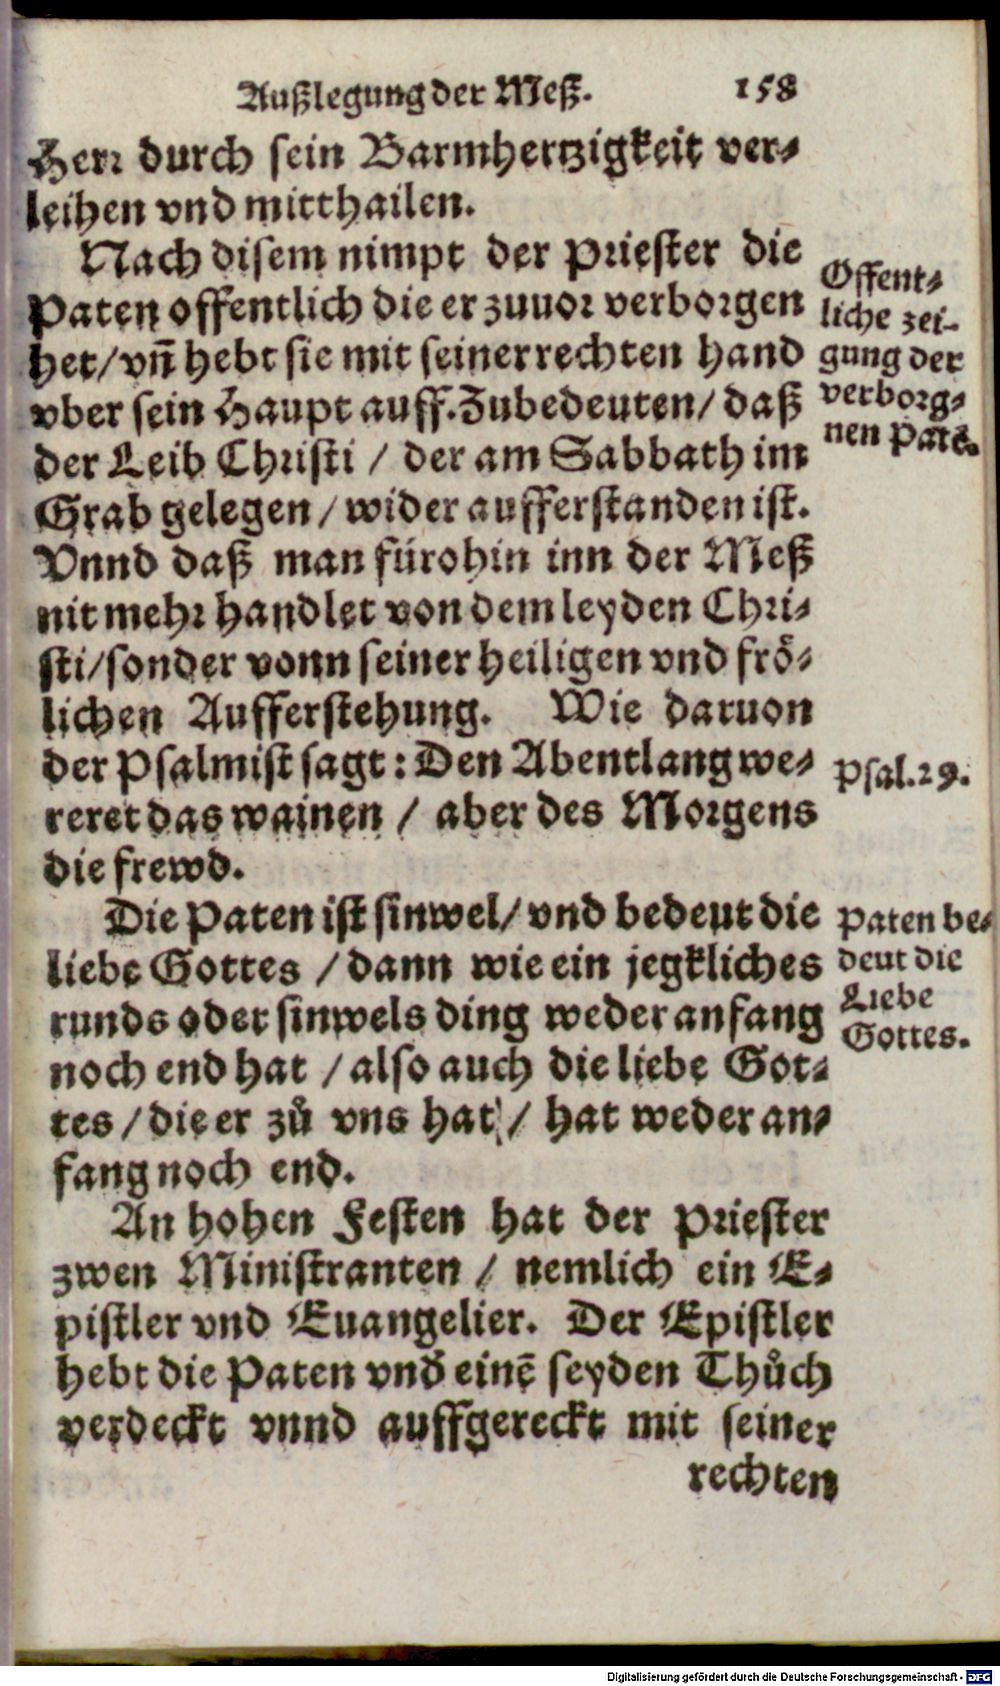 Außlegung der Meß. 158
Herr durch sein Barmhertzigkeit ver-
leihen vnd mitthailen.
Nach disem nimpt der Priester die
Paten offentlich die er zuuor verborgen
het/ vñ hebt sie mit seiner rechten Hand
vber sein Haupt auff. Zubedeuten/ daß
der Leib Christi / der am Sabbath im
Grab gelegen / wider aufferstanden ist.
Vnnd daß man fürohin inn der Meß
nit mehr handlet von dem leyden Chri-
sti/ sonder vonn seiner heiligen vnd frö-
lichen Aufferstehung. Wie daruon
der Psalmist sagt: Den Abentlang we-
reret das wainen / aber des Morgens
die frewd.
Die Paten ist sinwel/ vnd bedeut die
liebe Gottes / dann wie ein jegkliches
runds oder sinwels ding weder anfang
noch end hat / also auch die liebe Got-
tes / die er zů vns hat / hat weder an-
fang noch end.
An hohen Festen hat der Priester
zwen Ministranten / nemlich ein E-
pistler vnd Euangelier. Der Epistler
hebt die Paten vnd einē seyden Thůch
verdeckt vnnd auffgereckt mit seiner
rechten
Offent-
liche zei-
gung der
verborg-
nen Patē.
Psal. 29.
Paten be-
deut die
Liebe
Gottes.
Digitalisierung gefördert durch die Deutsche Forschungsgemeinschaft - DFG